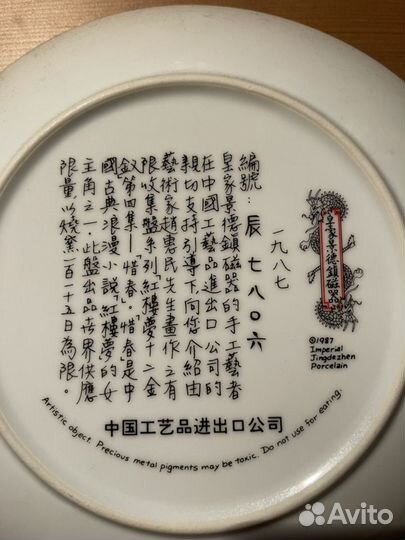 一九八七
編號：辰七八〇六
皇家景德鎮磁器的手工藝者
在中國工藝品進出口公司的
親切支持引導下向您介紹由
藝術家趙惠民先生畫作之有
限收集盤系列紅樓夢十二金
釵第四集—「惜春」。惜春是中
國古典浪漫小說「紅樓夢」的女
主角之一。此盤出品世界供應
限量，以燒窯一百一十五日為限。
皇家景德鎮磁器
©1987
Imperial
Jingdezhen
Porcelain
中国工艺品进出口公司
Artistic object. Precious metal pigments may be toxic. Do not use for eating.
Avito